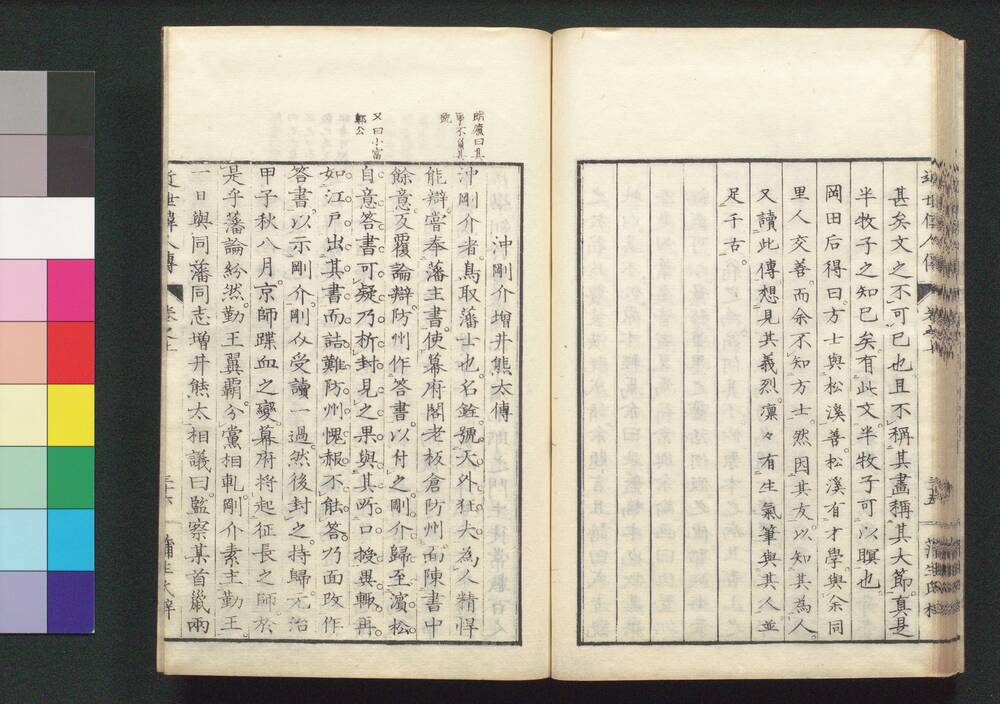 甚矣文之不可已也且不稱其畫稱其大節真是
半牧子之知已矣有此文半牧子可以瞑也
岡田后得曰方士與松溪善松溪有才學與余同
里人交善而余不知方士然因其友以知其為人
又讀此傳想見其義烈凛々有生氣筆與其人並
足千古
沖剛介增井熊太傳
沖剛介者鳥取藩士也名銓號天外狂夫為人精悍
能辯嘗奉藩主書使幕府閣老板倉防州面陳書中
餘意反覆論辯防州作答書以付之剛介歸至濱松
自意答書可疑乃析封見之果與其所口授異輙再
如江戸出其書而詰難防州愧赧不能答乃面改作
答書以示剛介剛介受讀一過然後封之持歸元治
甲子秋八月京師蹀血之變幕府將起征長之師於
是乎藩論紛然勤王翼霸分黨相軋剛介素主勤王
一日與同藩同志增井熊太相議曰監察某首鼠兩
近世偉人傳
又曰小富
鄭公